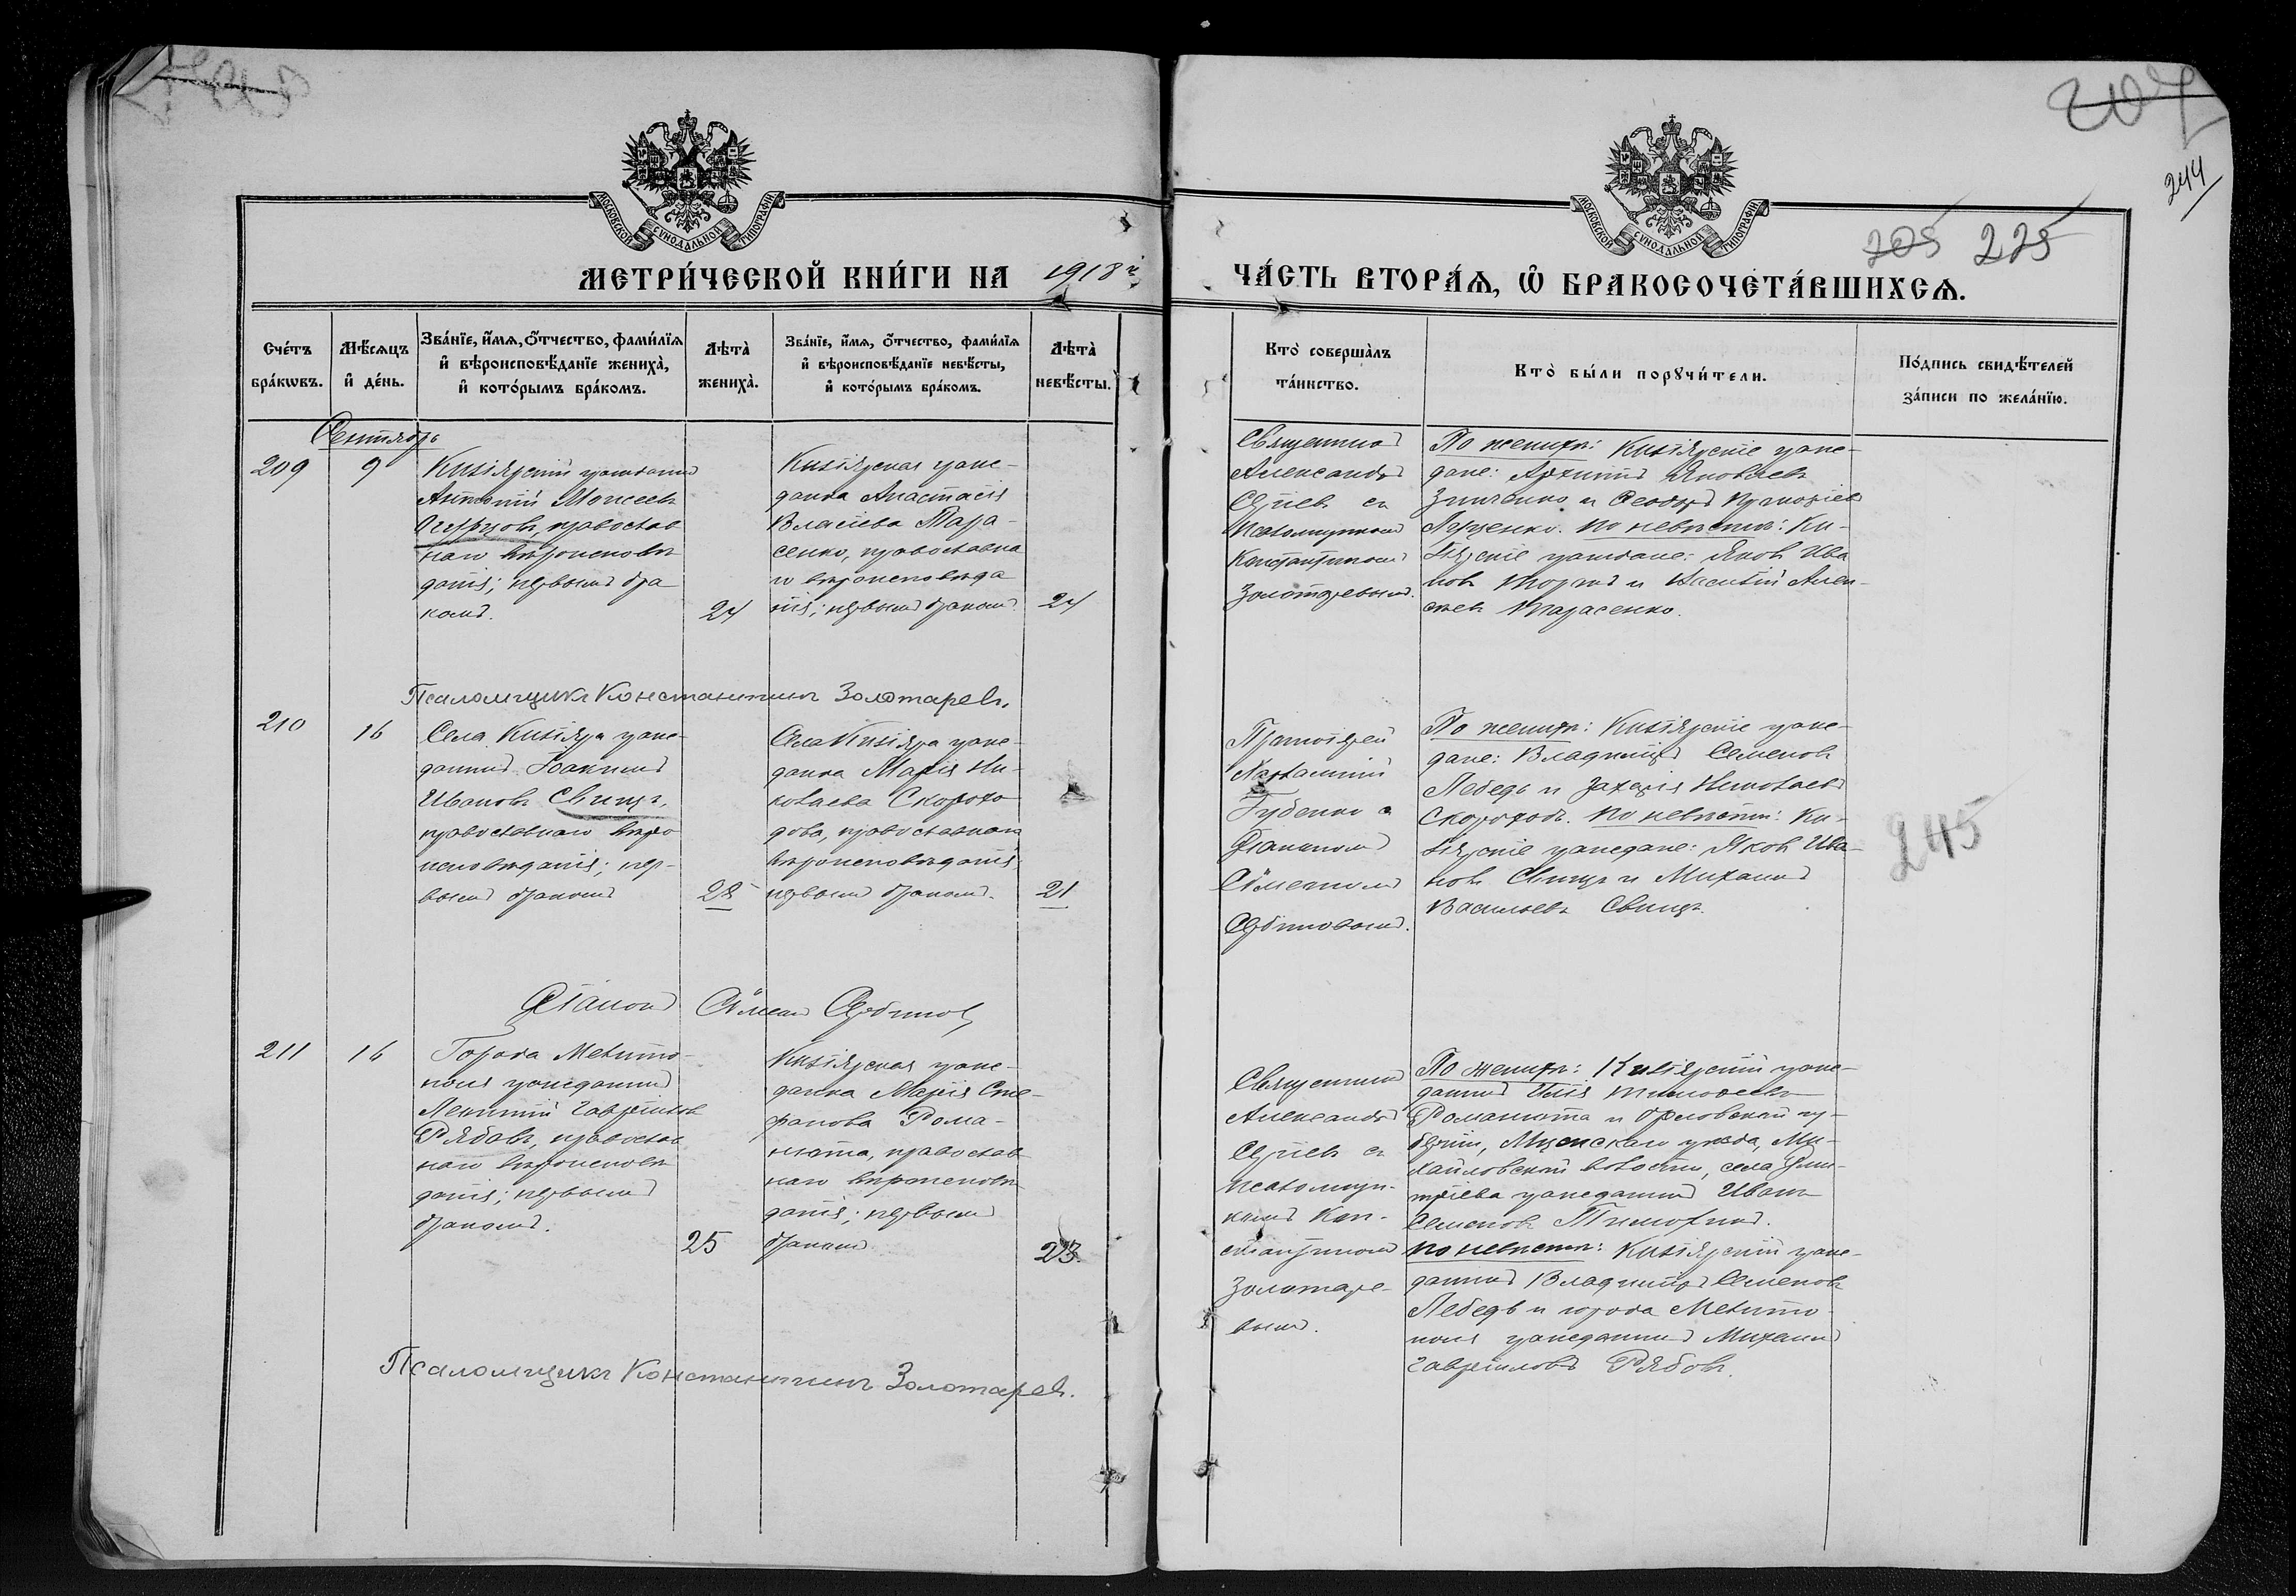 МОСКОВСКОЙ СѴНОДАЛЬНОЙ ТИПОГРАФІИ
МЕТРИ́ЧЕСКОЙ КНИ́ГИ НА 1918 г.
Сче́тъ бра́кωвъ.
Мѣ́сяцъ и҆ де́нь.
Зва́нїе, и҆́мѧ, ѻ҆́тчество, фами́лїѧ
и҆ вѣроисповѣ́данїе жениха̀,
и҆ кото́рымъ бра́комъ.
Лѣта̀ жениха̀.
Зва́нїе, и҆́мѧ, ѻ҆́тчество, фами́лїѧ
и҆ вѣроисповѣ́данїе невѣ́сты,
и҆ кото́рымъ бра́комъ.
Лѣта̀ невѣ́сты.
Сентябрь
209
9
Кизіярскій гражданинъ
Антоній Моисеевъ
православ
наго вѣроисповѣ
данія; первымъ бра
комъ.
24
Кизіярская граж-
данка Анастасія
Власіева Тара-
сенко, православна
го вѣроисповѣда
нія; первымъ бракомъ.
24
Псаломщикъ Константинъ Золотаревъ.
210
16
Села Кизіяра граж-
данинъ Іоакимъ
Ивановъ Свинцъ,
православнаго вѣро
исповѣданія; пер-
вымъ бракомъ
28
Села Кизіяра граж-
данка Марія Ни-
колаева Скорохо
дова, православнаго
вѣроисповѣданія;
первымъ бракомъ.
21
Діаконъ Сѵмеонъ Сербиновъ
211
16
Города Мелито-
поля гражданинъ
Леонтій Гавріиловъ
Рябовъ, православ
наго вѣроисповѣ
данія; первымъ
бракомъ.
25
Кизіярская граж-
данка Марія Сте-
фанова Рома-
нюта, православ
наго вѣроисповѣ-
данія; первымъ
бракомъ
23.
Псаломщикъ Константинъ Золотаревъ.
207
244
МОСКОВСКОЙ СѴНОДАЛЬНОЙ ТИПОГРАФІИ
205 225
ЧА́СТЬ ВТОРА́Ѧ, Ѽ БРАКОСОЧЕТА́ВШИХСѦ.
Кто̀ соверша̀лъ
та́инство.
Кто̀ бы́ли порꙋчи́тели.
По́дпись свидѣ́телей
за́писи по жела́нїю.
Священникъ
Александръ
Сергіевъ съ
псаломщикомъ
Константиномъ
Золотаревымъ.
По женихѣ: Кизіярскіе граж-
дане: Архипъ Яковлевъ
Зинченко и Ѳеодоръ Прокофіевъ
Луценко. По невѣстѣ: Ки-
зіярскіе граждане: Яковъ Ива
новъ и Василій Алек-
сѣевъ Тарасенко.
Протоіерей
Губенко съ
Діакономъ
Сѵмеономъ
Сербиновымъ.
По женихѣ: Кизіярскіе граж-
дане: Владиміръ Семеновъ
Лебедь и Захарія Николаевъ
Скороходъ. По невѣстѣ: Ки-
зіярскіе граждане: Яковъ Ива-
новъ Свинцъ и Михаилъ
Васильевъ Свинцъ.
245
Священникъ
Александръ
Сергіевъ съ
псаломщи-
комъ Кон-
стантиномъ
Золотаре-
вымъ.
По женихѣ: Кизіярскій граж-
данинъ Илія Тимофеевъ
Романюта и Орловской гу-
берніи, Мценскаго уѣзда, Ми-
хайловской волости, села Дми-
тріева гражданинъ Иванъ
Семеновъ Тимохинъ.
По невѣстѣ: Кизіярскій граж-
данинъ Владиміръ Семеновъ
Лебедь и города Мелито
поля гражданинъ Михаилъ
Гавріиловъ Рябовъ.